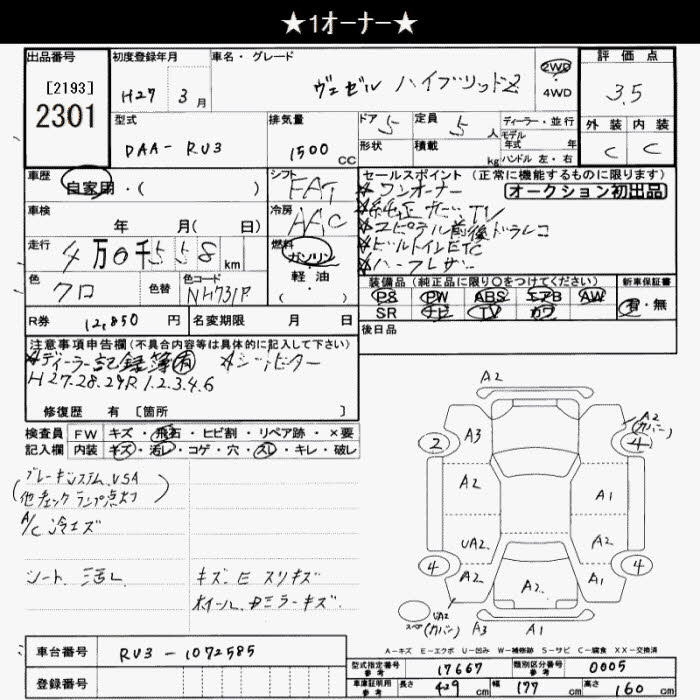 ★1オーナー★
出品番号 初度登録年月 車名・グレード 評価点
[2193]
2301
H27 3月 ヴェゼル ハイブリッドZ 2WD ・ 4WD 3.5
型式 排気量 ドア 5 定員 5人 ディーラー・並行 外装 内装
DAA-RU3 1500cc 形状 積載 kg モデル年式 年 ハンドル 左・右 C C
車歴 自家用・( ) シフト FAT セールスポイント(正常に機能するものに限ります)
☆ワンオーナー オークション初出品
車検 年 月(日) 冷房 AAC ☆純正ナビTV
☆ユピテル前後ドラレコ
走行 4万0千558km 燃料 ガソリン ☆ビルトインETC
軽・油 ☆ハーフレザー
色 クロ 色替 色コード NH731P ・( )
装備品(純正品に限り○をつけてください) 新車保証書
PS PW ABS エアB AW 有・無
SR ナビ TV カワ
R券 12,850円 名変期限 月 日 後日品
注意事項申告欄(不具合内容等は具体的に記入して下さい)
☆ディーラー記録簿有 ☆シートヒーター
H27.28.29R1.2.3.4.6
修復歴 有[箇所 ]
検査員 FW キズ・飛石・ヒビ割・リペア跡・×要
記入欄 内装 キズ・汚レ・コゲ・穴・スレ・キレ・破レ
ブレーキシステム、VSA
(他チェックランプ点灯)
A/C冷エズ
シート 汚レ キズE スリキズ
ホイール、ドミラーキズ、
A2
A3
2
A2
(カバー)
4
A2
A1
UA2
A2
4
A2
A2
A1
4
UA2
スペア(カバー) A3 A1
A-キズ E-エクボ U-凹み W-補修跡 S-サビ C-腐食 XX-交換済
車台番号 RU3-1072585
型式指定番号 参考 17667 類別区分番号 参考 0005
登録番号
車庫証明用 参考 長さ 429cm 幅 177cm 高さ 160cm